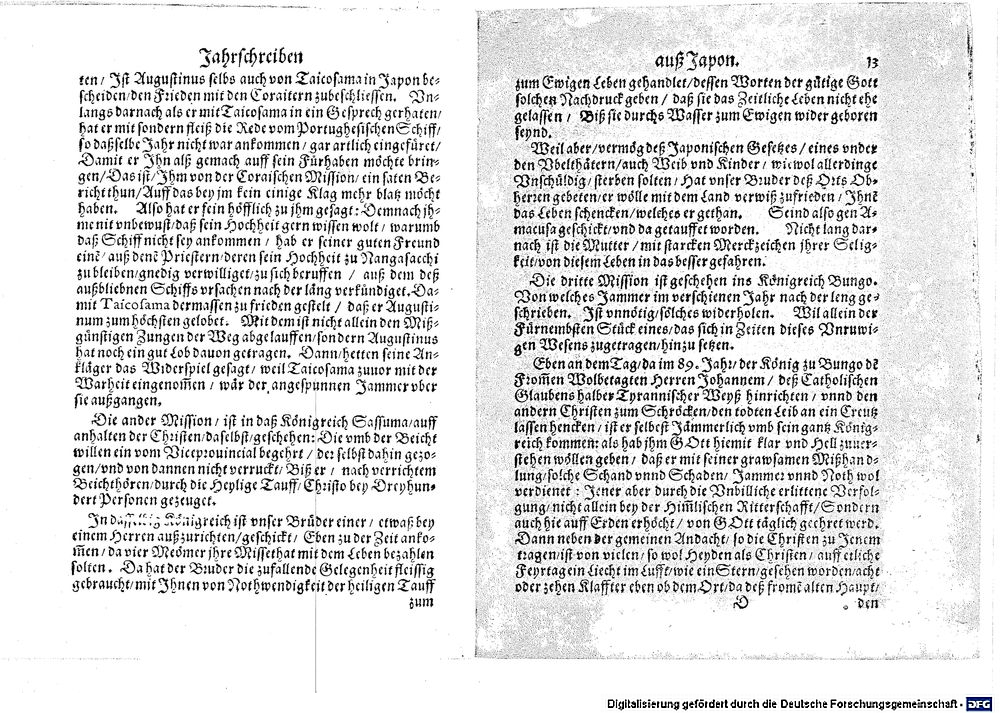 Jahrschreiben
ten / Ist Augustinus selbs auch von Taicosama in Japon be-
scheiden / den Frieden mit den Coraitern zubeschliessen. Vn-
langs darnach als er mit Taicosama in ein Gesprech gerhaten /
hat er mit sondern fleiß die Rede vom Portughesischen Schiff /
so daßselbe Jahr nicht war ankommen / gar artlich eingefüret /
Damit er Ihn alß gemach auff sein Fürhaben möchte brin-
gen / Das ist / Ihm von der Coraischen Mission / ein saten Be-
richt thun / Auff das bey jm kein einige Klag mehr blatz möcht
haben. Also hat er fein höfflich zu jhm gesagt: Demnach jh-
me nit vnbewust / daß sein Hochheit gern wissen wolt / warumb
daß Schiff nicht sey ankommen / hab er seiner guten Freund
einē / auß denē Priestern / deren sein Hochheit zu Nangasacchi
zu bleiben / gnedig verwilliget / zu sich beruffen / auß dem deß
außbliebnen Schiffs vrsachen nach der läng verkündiget. Da-
mit Taicosama dermassen zu frieden gestelt / daß er Augusti-
num zum höchsten gelobet. Mit dem ist nicht allein den Miß-
günstigen Zungen der Weg abgelauffen / sondern Augustinus
hat noch ein gut Lob dauon getragen. Dann / hetten seine An-
kläger das Widerspiel gesagt / weil Taicosama zuuor mit der
Warheit eingenom̄en / wär der angespunnen Jammer vber
sie außgangen.
Die ander Mission / ist in daß Königreich Sassuma / auff
anhalten der Christen / daselbst / geschehen: Die vmb der Beicht
willen ein vom Viceprouincial begehrt / der selbst dahin gezo-
gen / vnd von dannen nicht verruckt / Biß er / nach verrichtem
Beichthören / durch die Heylige Tauff / Christo bey Dreyhun-
dert Personen gezeuget.
In dasselbig Königreich ist vnser Brüder einer / etwaß bey
einem Herren außzurichten / geschickt / Eben zu der Zeit anko-
m̄en / da vier Meömer jhre Missethat mit dem Leben bezahlen
solten. Da hat der Bruder die zufallende Gelegenheit fleissig
gebraucht / mit Ihnen von Nothwendigkeit der heiligen Tauff
zum
auß Japon. 13
zum Ewigen Leben gehandlet / dessen Worten der gütige Gott
solchen Nachdruck geben / daß sie das Zeitliche Leben nicht ehe
gelassen / Biß sie durchs Wasser zum Ewigen wider geboren
seynd.
Weil aber / vermög deß Japonischen Gesetzes / eines vnder
den Vbelthätern / auch Weib vnd Kinder / wiewol allerdinge
Vnschüldig / sterben solten / Hat vnser Bruder deß Orts Ob-
herren gebeten / er wölle mit dem Land verwiß zufrieden / Ihnē
das Leben schencken / welches er gethan. Seind also gen A-
macusa geschickt / vnd da getauffet worden. Nicht lang dar-
nach ist die Mutter / mit starcken Merckzeichen jhrer Selig-
keit / von diesem Leben in das besser gefahren.
Die dritte Mission ist geschehen ins Königreich Bungo.
Von welches Jammer im verschienen Jahr nach der leng ge-
schrieben. Ist vnnötig / sölches widerholen. Wil allein der
Fürnembsten Stück eines / das sich in Zeiten dieses Vnruwi-
gen Wesens zugetragen / hinzu setzen.
Eben an dem Tag / da im 89. Jahr / der König zu Bungo dē
From̄en Wolbetagten Herren Johannem / deß Catholischen
Glaubens halber Tyrannischer Weyß hinrichten / vnnd den
andern Christen zum Schröcken / den todten Leib an ein Creutz
lassen hencken / ist er selbest Jämmerlich vmb sein gantz König-
reich kommen: als hab jhm GOtt hiemit klar vnd Hell zuuer-
stehen wöllen geben / daß er mit seiner grawsamen Mißhand-
lung / solche Schand vnnd Schaden / Jammer vnnd Noth wol
verdienet: Jener aber durch die Vnbilliche erlittene Verfol-
gung / nicht allein bey der Him̄lischen Ritterschafft / Sondern
auch hie auff Erden erhöcht / von GOtt täglich geehret werd.
Dann neben der gemeinen Andacht / so die Christen zu Jenem
tragen / ist von vielen / so wol Heyden als Christen / auff etliche
Feyrtag ein Liecht im Lufft / wie ein Stern / gesehen worden / acht
oder zehen Klaffter eben ob dem Ort / da deß fromē alten Haupt /
D den
Digitalisierung gefördert durch die Deutsche Forschungsgemeinschaft - DFG